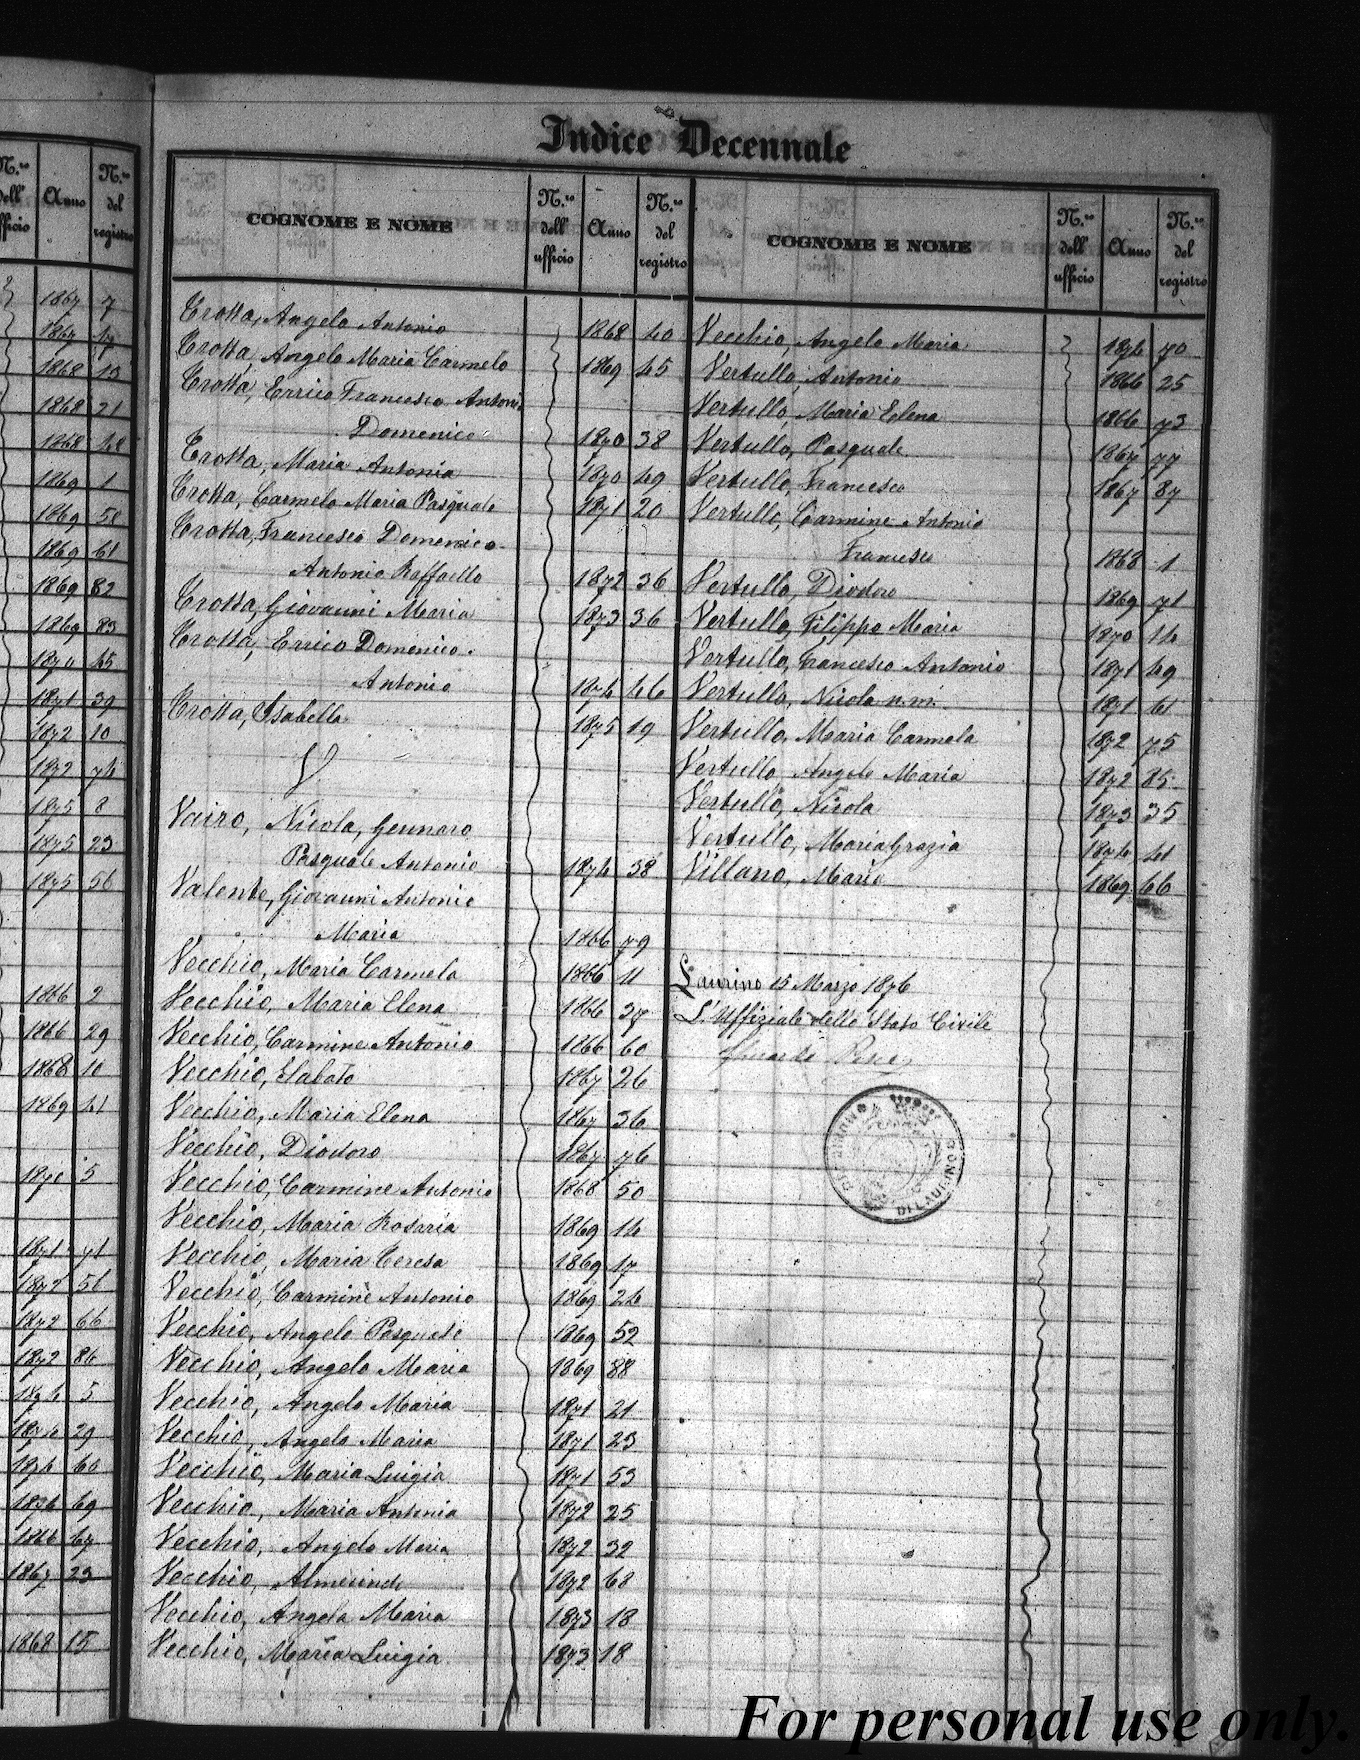 Indice Decennale
N.ro dell' ufficio Anno N.ro del registro
1867 7
1867 47
1868 13
1868 21
1868 48
1869 1
1869 58
1869 61
1869 82
1869 83
1870 45
1871 39
1872 10
1872 74
1875 8
1875 23
1875 56
1866 2
1866 29
1868 10
1869 41
1870 5
1871 71
1872 56
1872 66
1872 86
1874 5
1874 29
1874 60
1874 69
1866 67
1867 23
1868 15
COGNOME E NOME N.ro dell' ufficio Anno N.ro del registro
Trotta, Angelo Antonio 1868 40
Trotta, Angelo Maria Carmelo 1869 45
Trotta, Errico Francesco Antonio
Domenico 1870 38
Trotta, Maria Antonia 1870 49
Trotta, Carmela Maria Pasquale 1871 20
Trotta, Francesco Domenico
Antonio Raffaello 1872 36
Trotta, Giovanni Maria 1873 36
Trotta, Errico Domenico
Antonio 1874 46
Trotta, Isabella 1875 19
V
Vairo, Nicola, Gennaro
Pasquale Antonio 1874 38
Valente, Giovanni Antonio
Maria 1866 79
Vecchio, Maria Carmela 1866 11
Vecchio, Maria Elena 1866 37
Vecchio, Carmine Antonio 1866 60
Vecchio, Elaboto 1867 26
Vecchio, Maria Elena 1867 36
Vecchio, Diodoro 1867 76
Vecchio, Carmine Antonio 1868 50
Vecchio, Maria Rosaria 1869 14
Vecchio, Maria Teresa 1869 17
Vecchio, Carmine Antonio 1869 24
Vecchio, Angelo Pasquale 1869 52
Vecchio, Angela Maria 1869 88
Vecchio, Angelo Maria 1871 21
Vecchio, Angelo Maria 1871 23
Vecchio, Maria Luigia 1871 53
Vecchio, Maria Antonia 1872 25
Vecchio, Angelo Maria 1872 32
Vecchio, Almerinda 1872 68
Vecchio, Angela Maria 1873 18
Vecchio, Maria Luigia 1873 18
COGNOME E NOME N.ro dell' ufficio Anno N.ro del registro
Vecchio, Angelo Maria 1874 70
Vertullo, Antonio 1866 25
Vertullo, Maria Elena 1866 73
Vertullo, Pasquale 1867 77
Vertullo, Francesco 1867 87
Vertullo, Carmine Antonio
Francesco 1868 1
Vertullo, Diodoro 1869 71
Vertullo, Filippo Maria 1870 14
Vertullo, Francesco Antonio 1871 49
Vertullo, Nicola n.m. 1871 61
Vertullo, Maria Carmela 1872 75
Vertullo, Angelo Maria 1872 85
Vertullo, Nicola 1873 35
Vertullo, Maria Grazia 1874 41
Villano, Maria 1869 66
Laurino 15 Marzo 1876
L'Uffiziale dello Stato Civile
DI LAURINO
For personal use only.